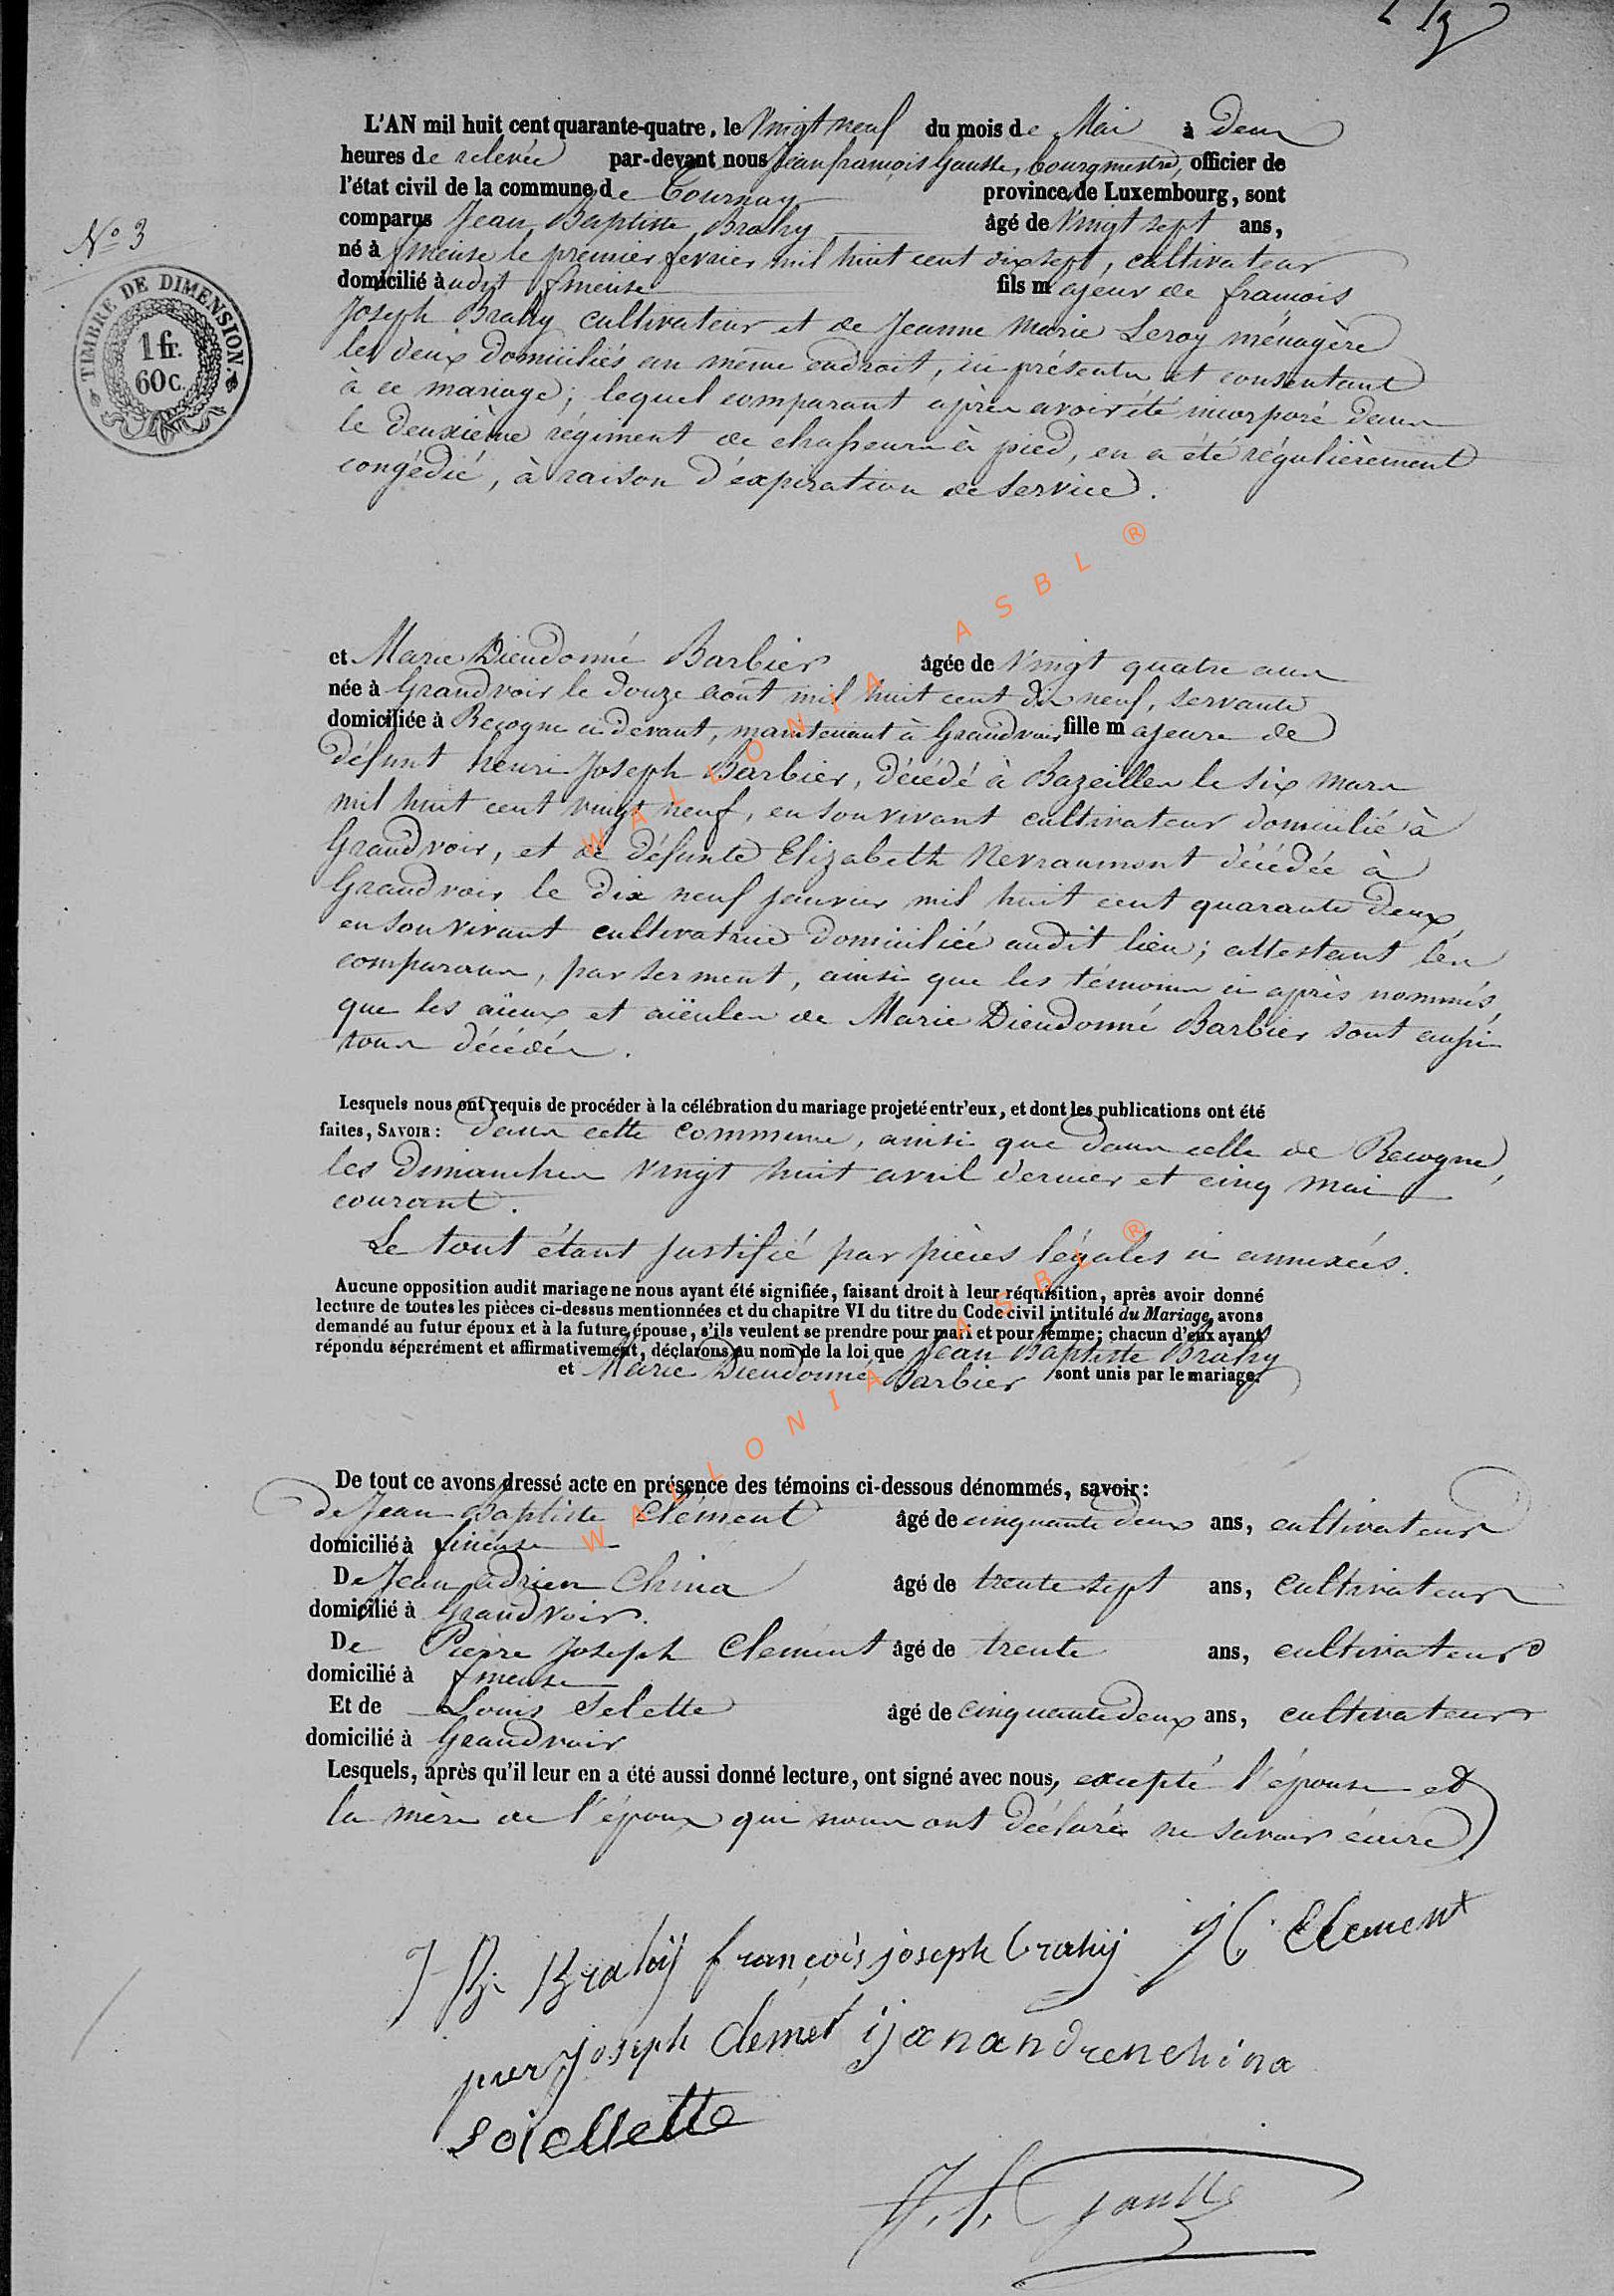 N° 3
TIMBRE DE DIMENSION.
1 fr.
60 c.
L'AN mil huit cent quarante-quatre, le Vingt neuf du mois de Mai à deux
heures de relevée par-devant nous Jean françois Gausse, bourgmestre, officier de
l'état civil de la commune de Tournay province de Luxembourg, sont
comparus Jean Baptiste Brahy âgé de Vingt sept ans,
né à fineuse le premier fevrier mil huit cent dix sept, cultivateur
domicilié à udit fineuse fils majeur de françois
Joseph Brahy cultivateur et de Jeanne Marie Leroy ménagère
les deux domiciliés au même endroit, ici présents et consentant
à ce mariage; lequel comparant après avoir été incorporé dans
le deuxième régiment de chasseurs à pied, en a été régulièrement
congédié, à raison d'expiration de service.
et Marie Dieudonné Barbier âgée de Vingt quatre ans
née à Grandvoir le douze août mil huit cent dix neuf, servante
domiciliée à Recogne ci devant, maintenant à Grandvoir fille majeure de
défunt henri Joseph Barbier, décédé à Bazeilles le six mars
mil huit cent vingt neuf, en son vivant cultivateur domicilié à
Grandvoir, et de défunte Elizabeth Nevraumont décédée à
Grandvoir le dix neuf janvier mil huit cent quarante deux,
en son vivant cultivatrice domiciliée audit lieu; attestant les
comparans, par serment, ainsi que les témoins ci après nommés,
que les aïeux et aïeules de Marie Dieudonné Barbier sont aussi
tous décédés.
Lesquels nous ont requis de procéder à la célébration du mariage projeté entr'eux, et dont les publications ont été
faites, SAVOIR: dans cette commune, ainsi que dans celle de Recogne,
les dimanches vingt huit avril dernier et cinq mai
courant.
Le tout étant justifié par pièces légales ci annexées.
Aucune opposition audit mariage ne nous ayant été signifiée, faisant droit à leur réquisition, après avoir donné
lecture de toutes les pièces ci-dessus mentionnées et du chapitre VI du titre du Code civil intitulé du Mariage, avons
demandé au futur époux et à la future épouse, s'ils veulent se prendre pour mari et pour femme; chacun d'eux ayant
répondu séparément et affirmativement, déclarons au nom de la loi que Jean Baptiste Brahy
et Marie Dieudonné Barbier sont unis par le mariage.
De tout ce avons dressé acte en présence des témoins ci-dessous dénommés, savoir:
de Jean Baptiste Clément âgé de cinquante deux ans, cultivateur
domicilié à fineuse
De Jean adrien China âgé de trente sept ans, cultivateur
domicilié à Grandvoir.
De Pierre Joseph Clement âgé de trente ans, cultivateur
domicilié à fineuse
Et de Louis Selette âgé de cinquante deux ans, cultivateur
domicilié à Grandvoir
Lesquels, après qu'il leur en a été aussi donné lecture, ont signé avec nous, excepté l'épouse et
la mère de l'époux qui nous ont déclaré ne savoir écrire
J B. Brahÿ françois joseph brahÿ Clement
pier Joseph clemet janandrenchina
Soiellette
J. f. Gausse
WALLONIA ASBL ®
WALLONIA ASBL ®